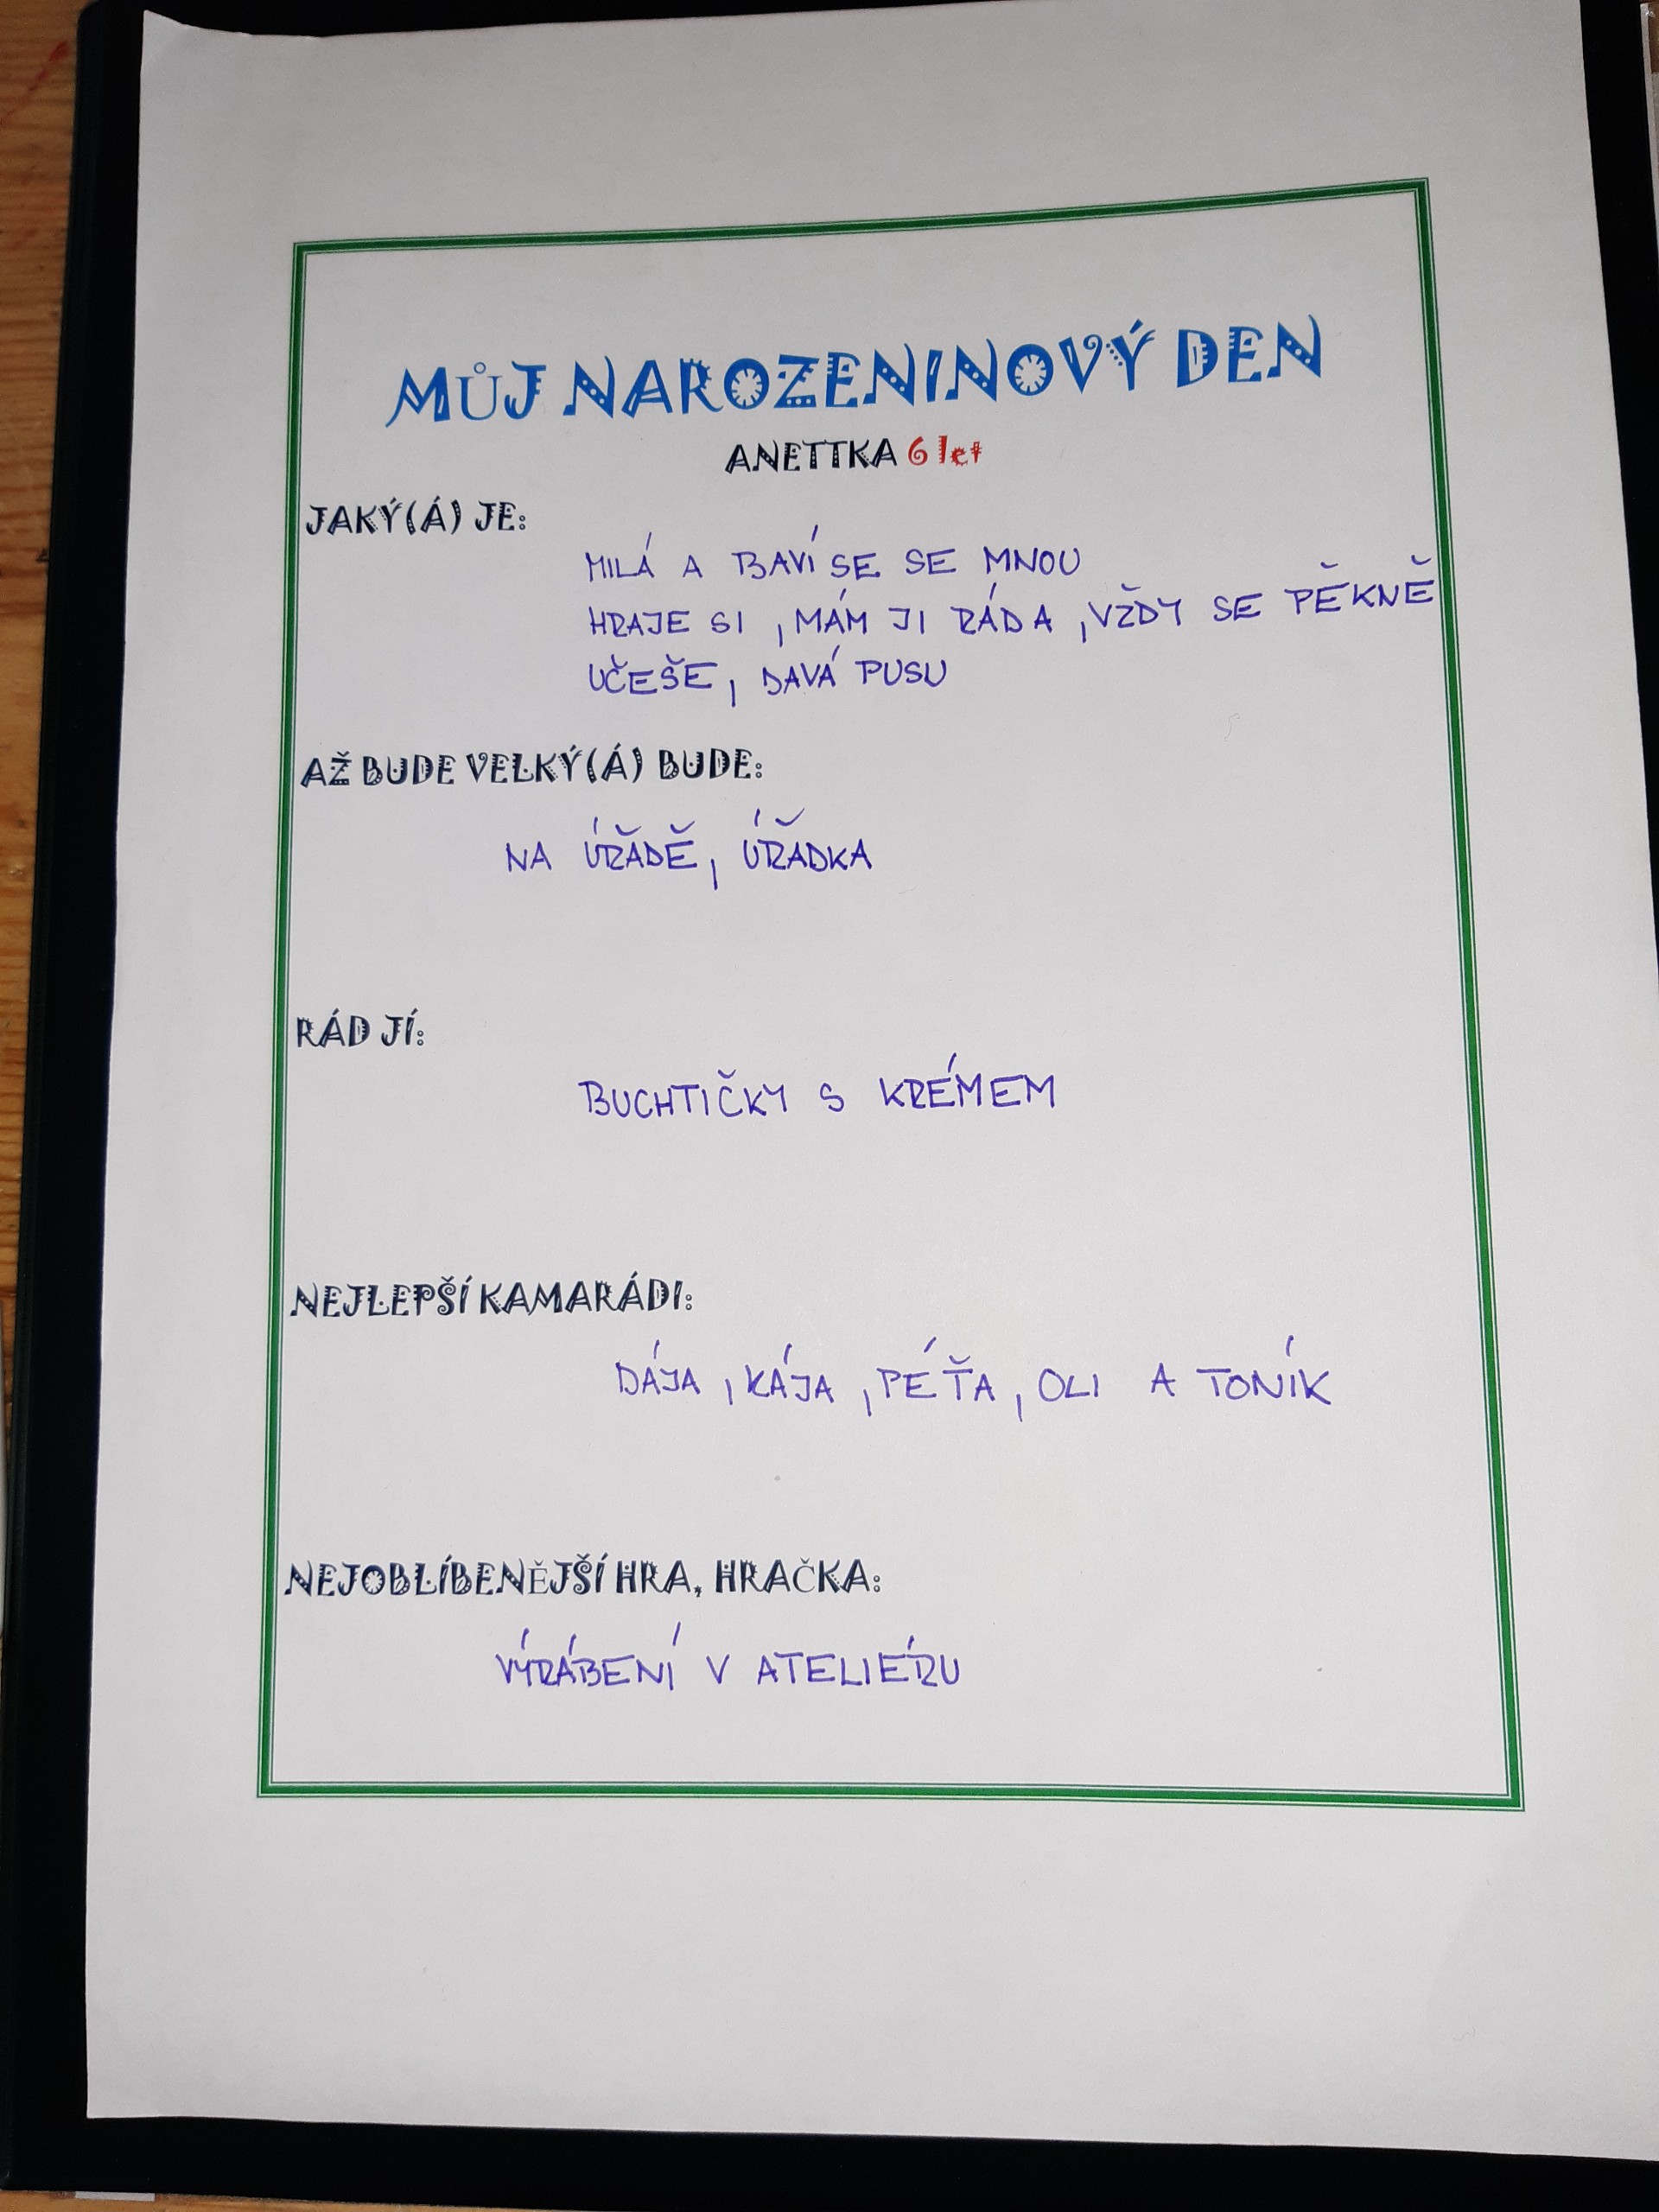 MŮJ NAROZENINOVÝ DEN
ANETTKA 6 let
JAKÝ(Á) JE:
MILÁ A BAVÍ SE SE MNOU
HRAJE SI, MÁM JI RÁDA, VŽDY SE PĚKNĚ
UČEŠE, DAVÁ PUSU
AŽ BUDE VELKÝ(Á) BUDE:
NA ÚŘADĚ, ÚŘADKA
RÁD JÍ:
BUCHTIČKY S KRÉMEM
NEJLEPŠÍ KAMARÁDI:
DÁJA, KÁJA, PÉŤA, OLI A TONÍK
NEJOBLÍBENĚJŠÍ HRA, HRAČKA:
VÝRÁBENÍ V ATELIÉRU